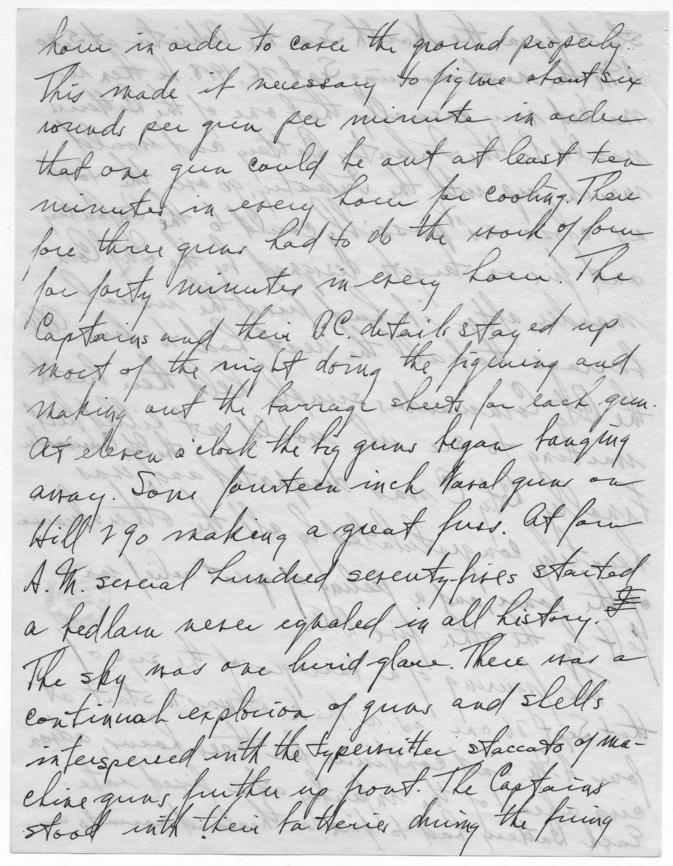 hour in order to cover the ground properly.
This made it necessary to figure about six
rounds per gun per minute in order
that one gun could be out at least ten
minutes in every hour for cooling. There
fore three guns had to do the work of four
for forty minutes in every hour. The
Captains and their P.C. details stayed up
most of the night doing the figuring and
making out the barrage sheets for each gun.
At eleven o'clock the big guns began banging
away. Some fourteen inch Naval guns on
Hill 290 making a great fuss. At four
A.M. several hundred seventy-fives started
a bedlam never equaled in all history.
The sky was one lurid glare. There was a
continual explosion of guns and shells
interspersed with the typewritter staccato of ma-
chine guns further up front. The Captains
stood with their batteries during the firing